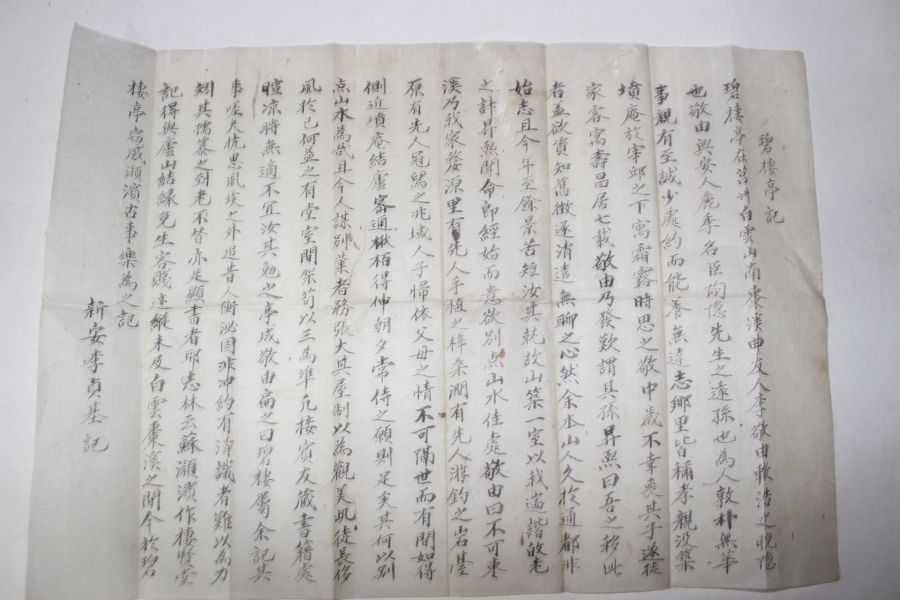 碧棲亭記
碧棲亭在莒州白雲山南棗溪申友人李敬由軾浩之晚隱
也敬由興安人麗季名臣陶隱先生之遠孫也為人敦朴無華
事親有至誠少處約而能養無違志鄉里皆稱孝親没築
墳庵於宰邱之下寓霜露時思之敬中歲不幸喪其子遂徙
家客寓壽昌居七載敬由乃發歎謂其孫昇熙曰吾之移此
者盖欲資知舊徵逐消遣無聊之心然余本山人久於通都非
始志且今年至餘景苦短汝其就故山築一室以我遄諧的老
之計昇熙聞命即經始而意欲別点山水佳處敬由曰不可棗
溪乃我家婺源里有先人手植之梓桑澗有先人游釣之岩基
原有先人冠舃之兆域人子歸依父母之情不可隔世而有間如得
側近墳庵結廬密通楸栢得伸朝夕常侍之願則足矣其何以別
点山水為哉且今人謀別業者務張大其屋制以為觀美此徒長侈
風於己何益之有堂室間架苟以三為準凢接賓友蔵書籍處
暄凉將無適不宜汝其勉之亭成敬由扁之曰碧棲屬余記其
事嗟尺杭思風埃之外追昔人衡泌固非冲約有清識者難以為力
矧其孺慕之到老不替亦足顯書者耶志林云蘇瀨濱作棲賢堂
記得與廬山結緣免生客賤迹縱未及白雲棗溪之間今於碧
棲亭窃感瀨濱古事樂為之記
新安李貞基記